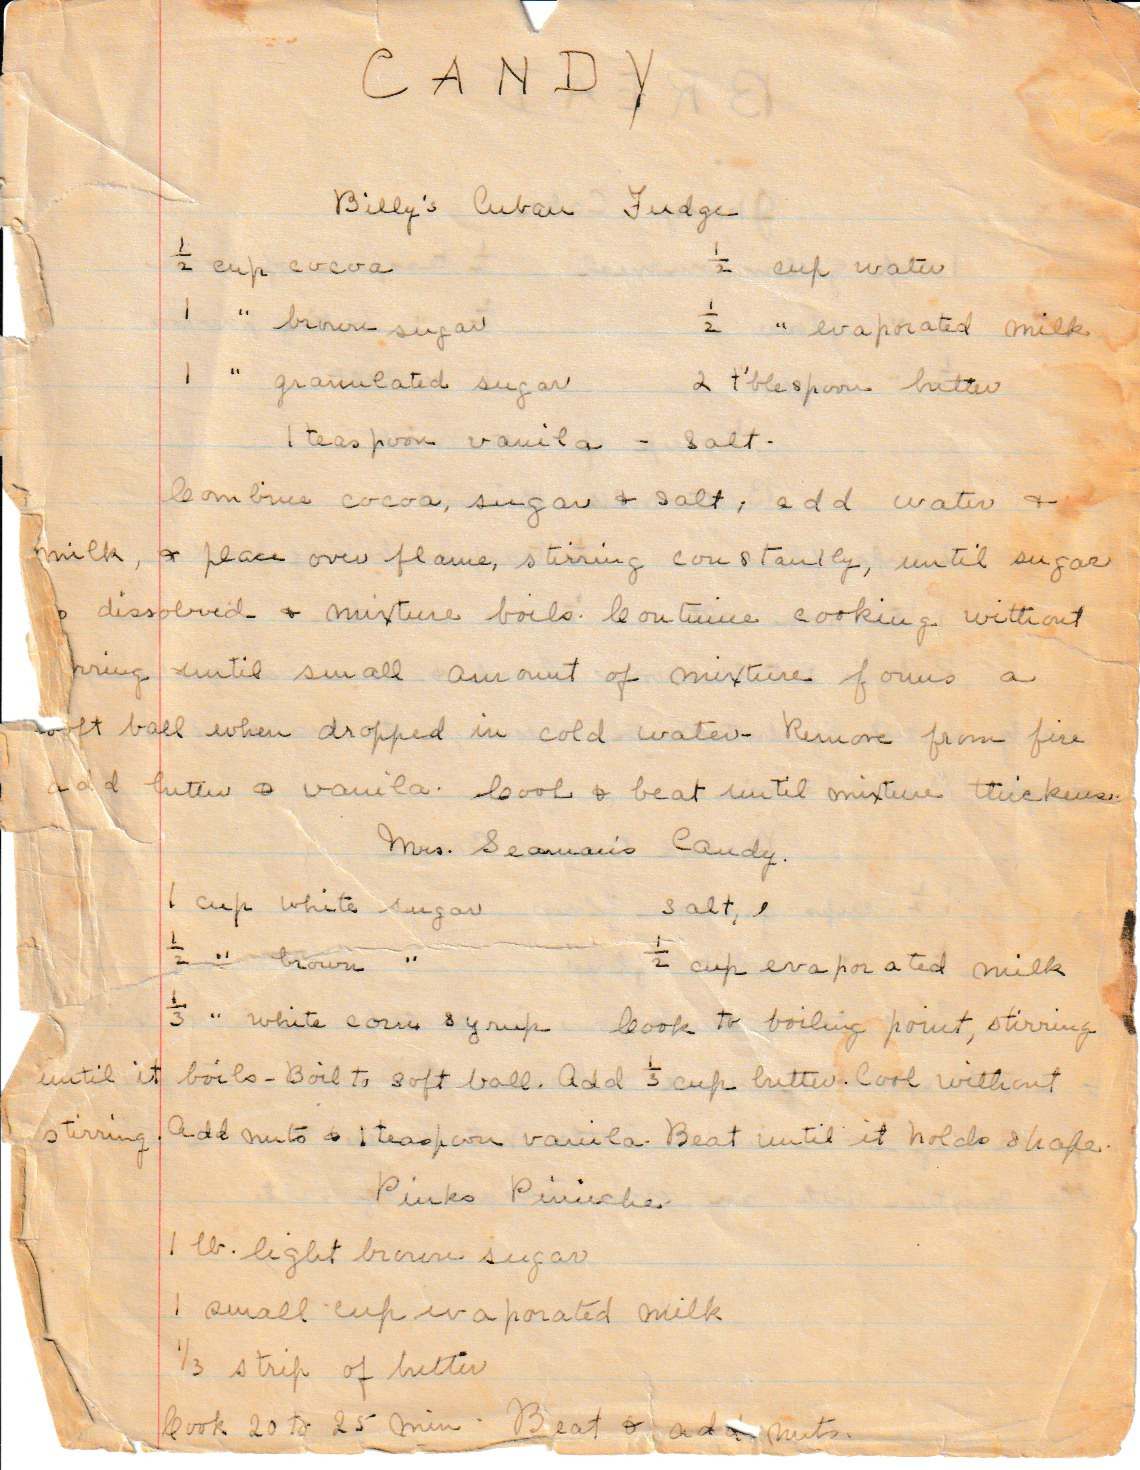 CANDY
Billy's Cuban Fudge
1/2 cup cocoa 1/2 cup water
1 " brown sugar 1/2 " evaporated milk
1 " granulated sugar 2 t'blespoon butter
1 teaspoon vanila - salt.
Combine cocoa, sugar & salt; add water &
milk, & place over flame, stirring constantly, until sugar
dissolved & mixture boils. Continue cooking without
rring until small amount of mixture forms a
soft ball when dropped in cold water - Remove from fire
add butter & vanila. Cool & beat until mixture thickens.
Mrs. Seaman's Candy.
1 cup white sugar salt,
1/2 " brown " 1/2 cup evaporated milk
1/3 " white corn syrup Cook to boiling point, stirring
until it boils - Boil to soft ball. Add 1/3 cup butter. Cool without
stirring. Add nuts & 1 teaspoon vanila. Beat until it holds shape.
Pinks
1 lb. light brown sugar
1 small cup evaporated milk
1/3 strip of butter
Cook 20 to 25 min. Beat & add nuts.